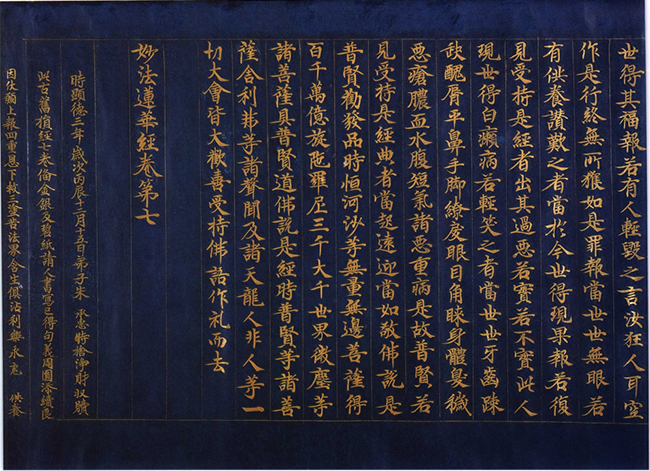 世得其福報若有人輕毀之言汝狂人耳空
作是行終無所獲如是罪報當世世無眼若
有供養讚歎之者當於今世得現果報若復
見受持是經者出其過惡若實若不實此人
現世得白癩病若輕笑之者當世世牙齒踈
缺醜脣平鼻手脚繚戾眼目角睞身體臭穢
惡瘡膿血水腹短氣諸惡重病是故普賢若
見受持是經典者當起遠迎當如敬佛說是
普賢勸發品時恒河沙等無量無邊菩薩得
百千萬億旋陁羅尼三千大千世界微塵等
諸菩薩具普賢道佛說是經時普賢等諸菩
薩舍利弗等諸聲聞及諸天龍人非人等一
切大會皆大歡喜受持佛語作礼而去
妙法蓮華經卷第七
時顯德三年歲次丙辰十二月十五日弟子朱承惠特捨淨財收贖
此古舊損經七卷備金銀及碧紙請人書寫已得句義周圓添續良
因伏願上報四重恩下救三塗苦法界含生俱沾利樂永充供養